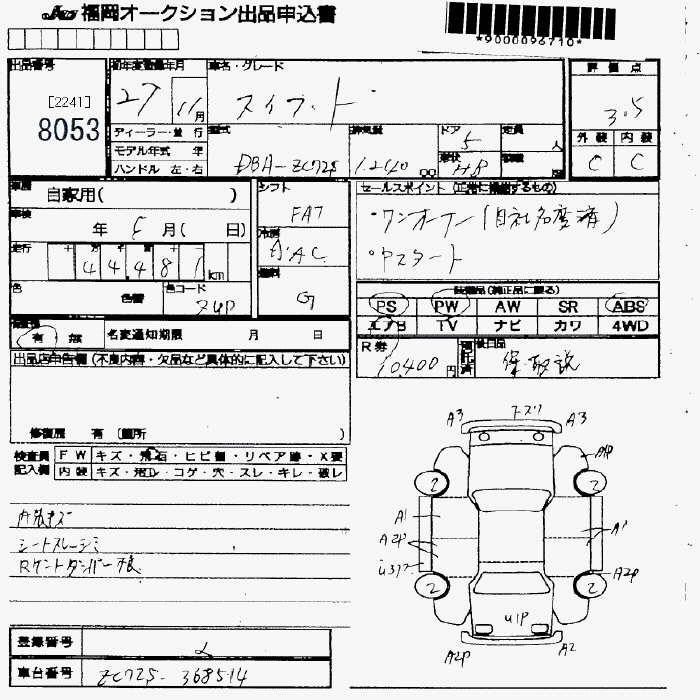 福岡オークション出品申込書
*9000096710*
出品番号
[2241]
8053
初年度登録年月
27 11月
車名・グレード
スイフト
評価点
3.5
外装 内装
C C
ディーラー・並行
モデル年式 年
ハンドル 左・右
型式
DBA-ZC72S
排気量
1240 cc
ドア
5
形状
HB
定員
人
車歴
自家用( )
車検
年 月( 日)
走行
44481 km
色
色替
色コード
ZUP
シフト
FAT
冷房
AAC
燃料
G
セールスポイント (正常に機能するもの)
・ワンオーナー(自社名変済)
・Pスタート
装備品(純正品に限る)
PS PW AW SR ABS
エアB TV ナビ カワ 4WD
R券
10,400円
預託済
後日品
保・取説
有 無
名変通知期限 月 日
出品店申告欄 (不良内容・欠品など具体的に記入して下さい)
修復歴 有 [箇所 )
検査員記入欄
FW キズ・飛石・ヒビ割・リペア跡・X要
内装 キズ・汚レ・コゲ・穴・スレ・キレ・破レ
内装キズ
シートスレ・シミ
A3 A3
A4P
2 2
A1 A1
A2P
U3P
2 2
A2P
U1P
A2P A2
登録番号
車台番号
ZC72S-368514